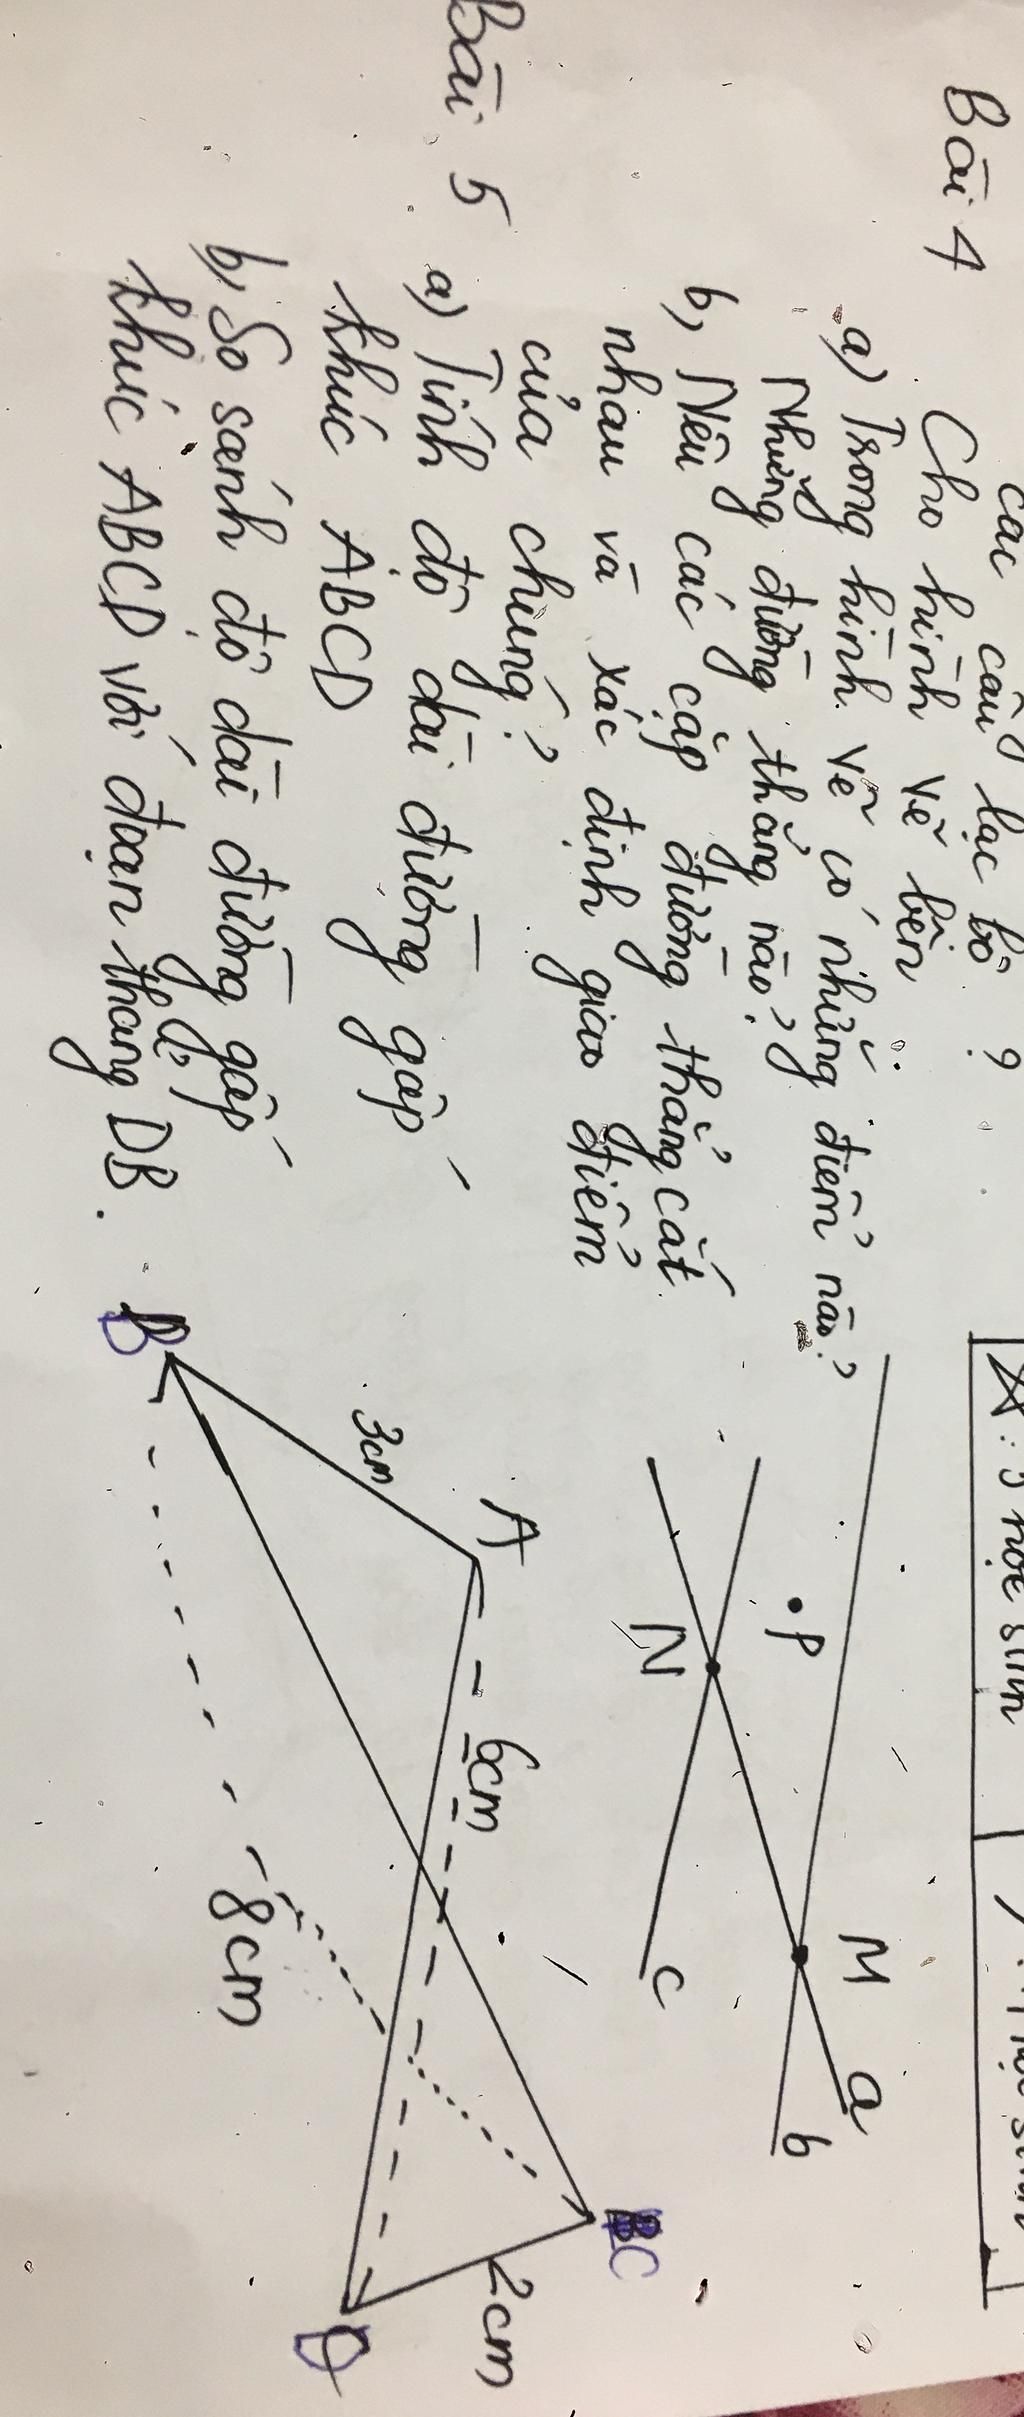 các câu lạc bộ ?
Bài 4 Cho hình vẽ bên :
a) Trong hình vẽ có những điểm nào?
Những đường thẳng nào?
b, Nêu các cặp đường thẳng cắt
nhau và xác định giao điểm
của chúng?
P
M
N
a
b
c
Bài 5 a) Tính độ dài đường gấp
khúc ABCD
b, So sánh độ dài đường gấp
khúc ABCD với đoạn thẳng DB.
A
B
C
D
3cm
6cm
8cm
2cm
học sinh